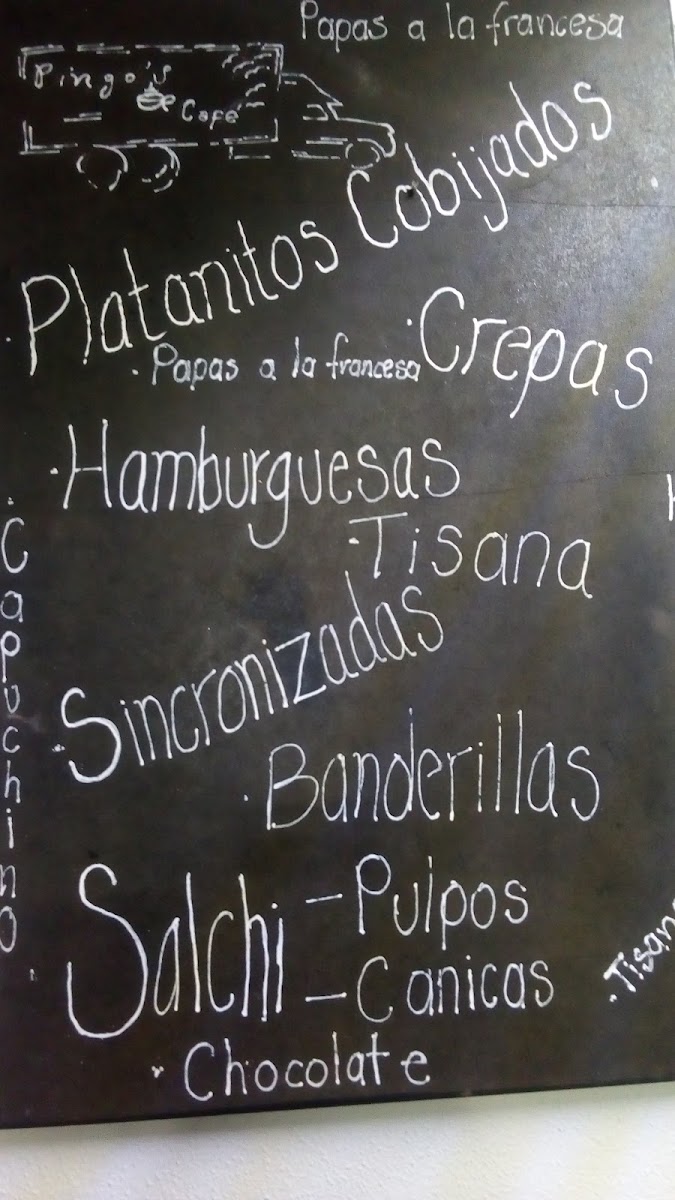 Papas a la francesa
Pingo's
Café
Platanitos Cobijados
. Crepas
. Papas a la francesa
. Hamburguesas
. Tisana
. Capuchino
. Sincronizadas
. Banderillas
. Salchi
- Pulpos
- Canicas
. Tisana
. Chocolate